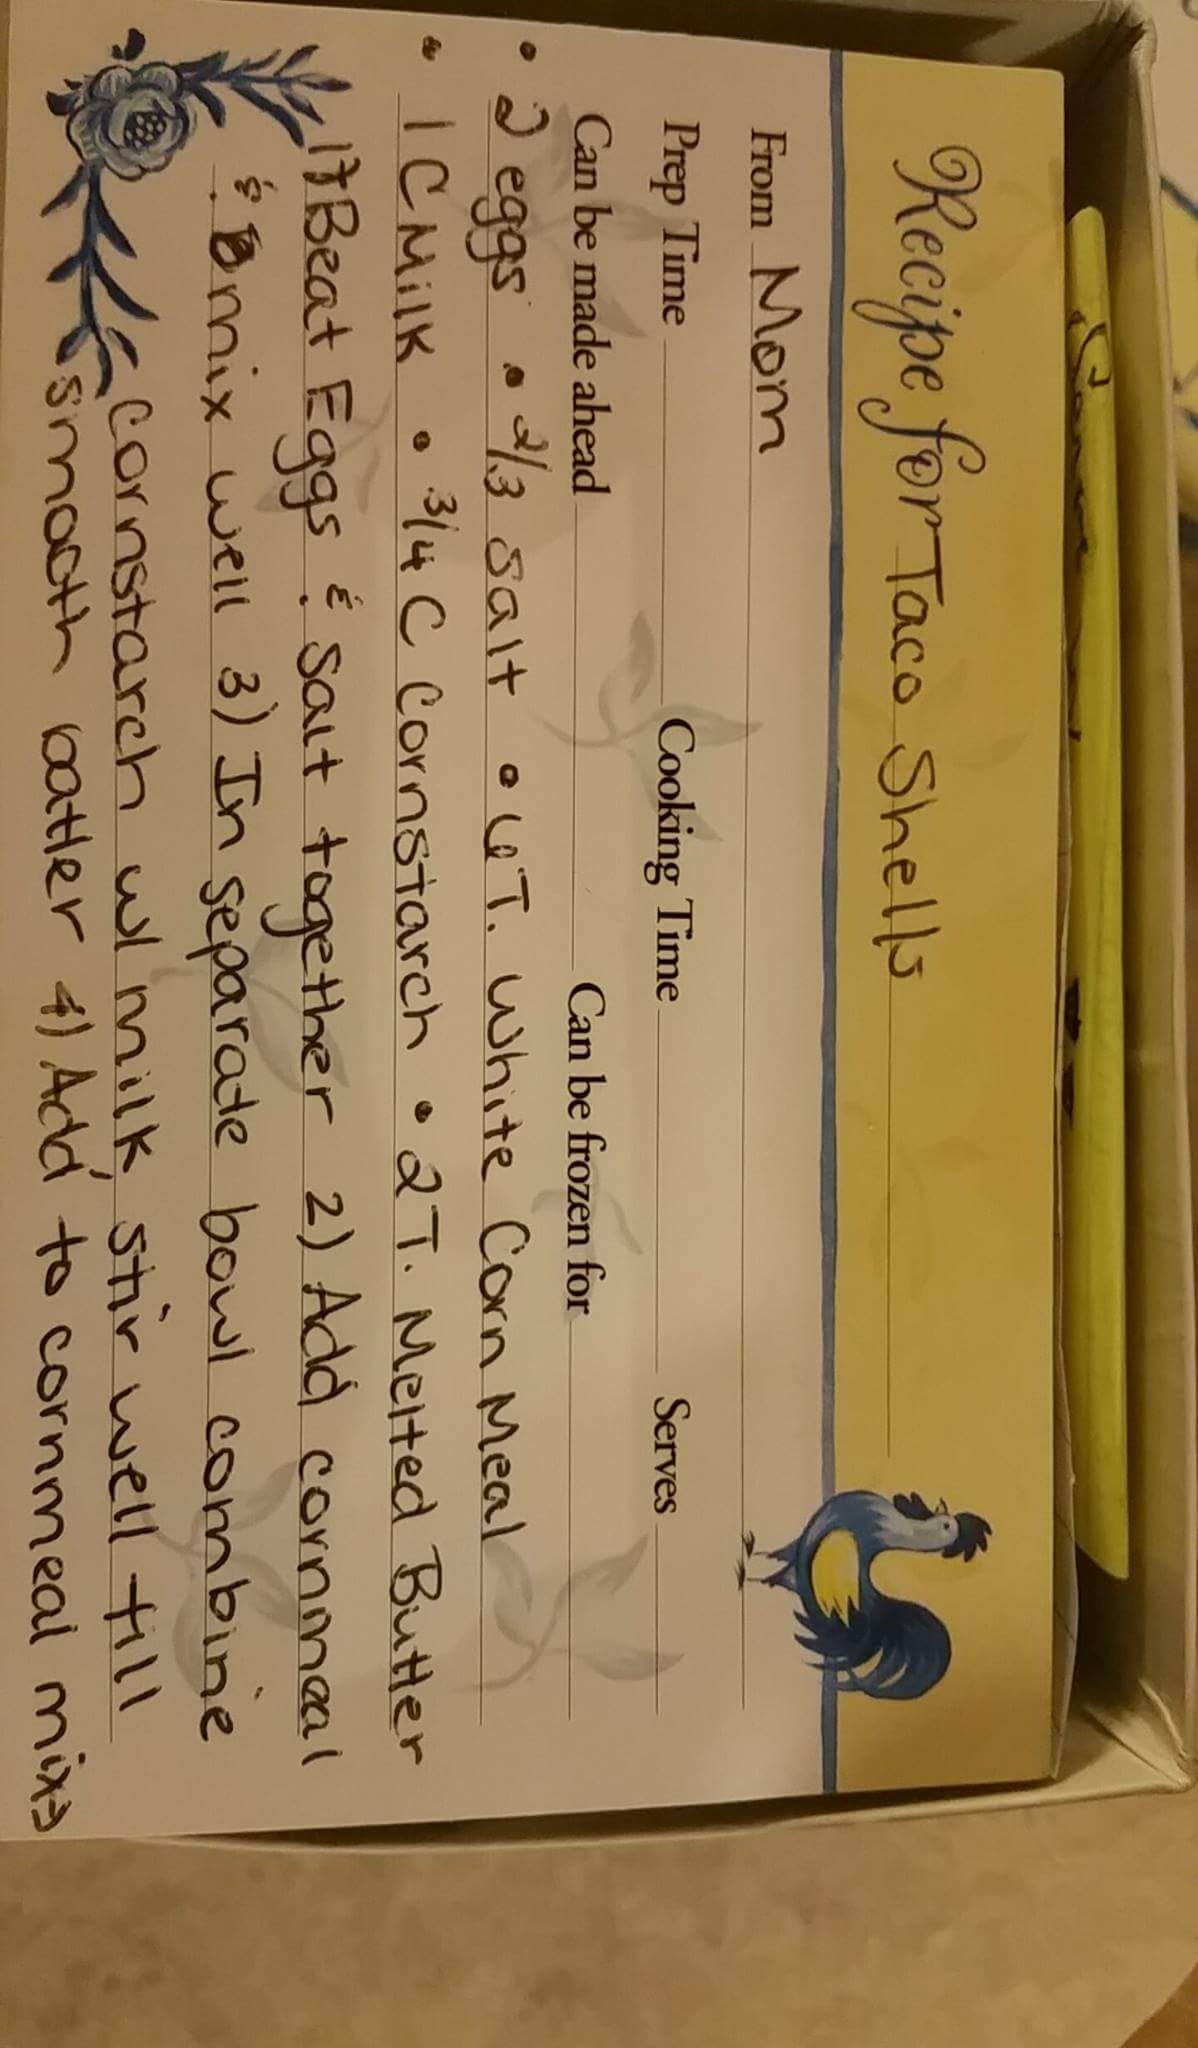 Recipe for Taco Shells
From Mom
Prep Time Cooking Time Serves
Can be made ahead Can be frozen for
• 2 eggs • 2/3 Salt • 6T. White Corn Meal
• 1 C Milk • 3/4 C Cornstarch • 2T. Melted Butter
1) Beat Eggs & Salt together 2) Add cornmeal
& mix well 3) In separate bowl combine
cornstarch w/ milk, stir well till
smooth batter 4) Add to cornmeal mix→